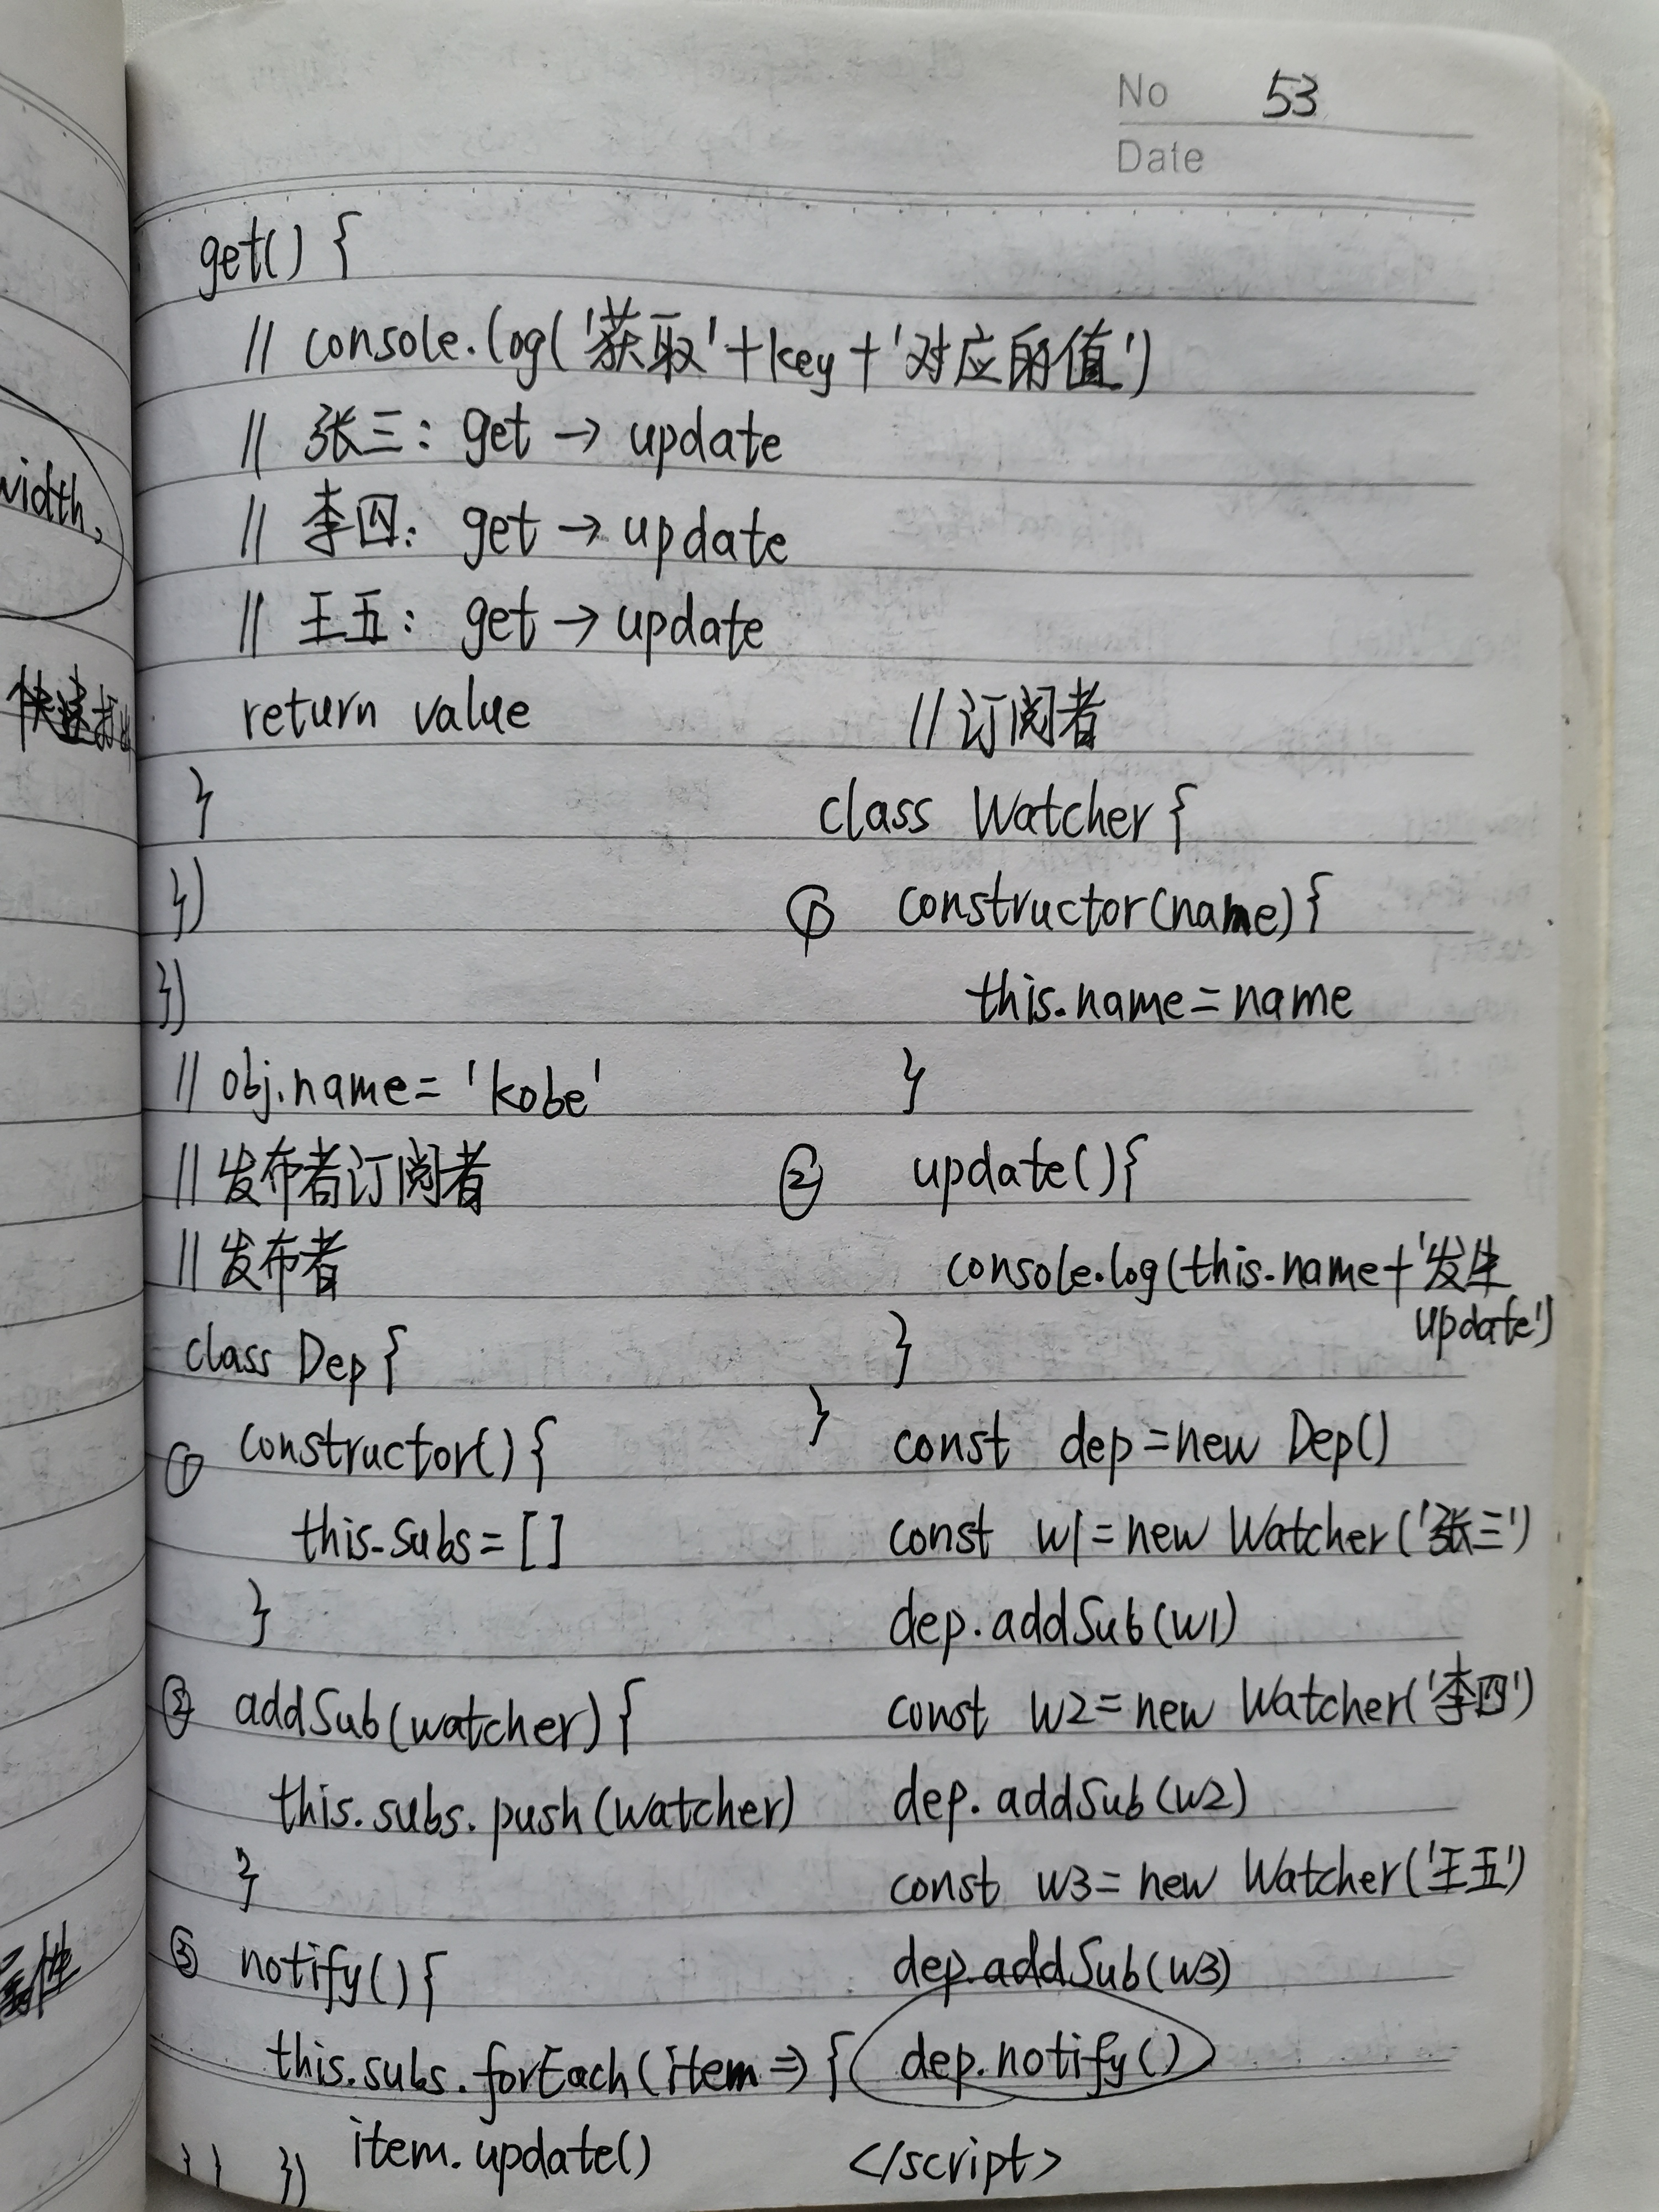 No 53
Date
get() {
// console.log('获取'+key+'对应的值')
// 张三: get → update
// 李四: get → update
// 王五: get → update
return value
}
})
})
// obj.name= 'kobe'
// 发布者订阅者
// 发布者
class Dep {
① constructor() {
this.subs = []
}
② addSub(watcher) {
this.subs.push(watcher)
}
③ notify() {
this.subs.forEach(item => {
item.update()
} } })
// 订阅者
class Watcher {
① constructor(name) {
this.name = name
}
② update() {
console.log(this.name + '发生
update')
}
}
const dep = new Dep()
const w1 = new Watcher('张三')
dep.addSub(w1)
const w2 = new Watcher('李四')
dep.addSub(w2)
const w3 = new Watcher('王五')
dep.addSub(w3)
dep.notify()
</script>
width,